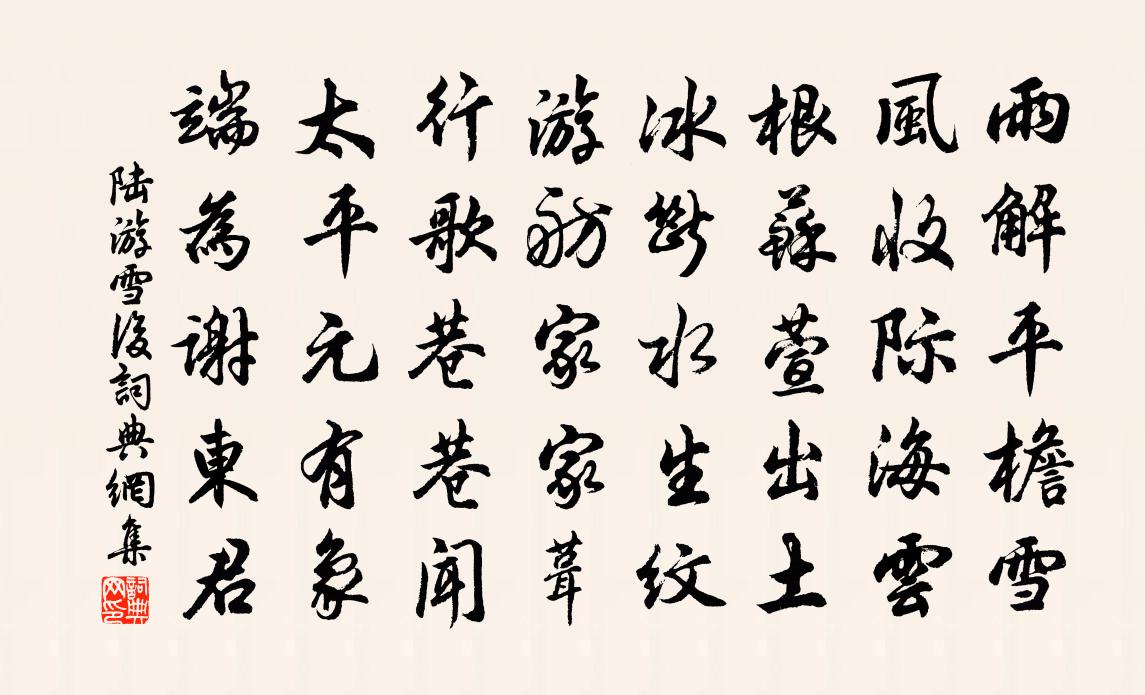 雨解平檐雪
風收际海雲
根蘇萱出土
冰斷水生紋
游舫家家葺
行歌巷巷聞
太平元有象
端為謝東君
陆游雪後詞典網集
詞典网印